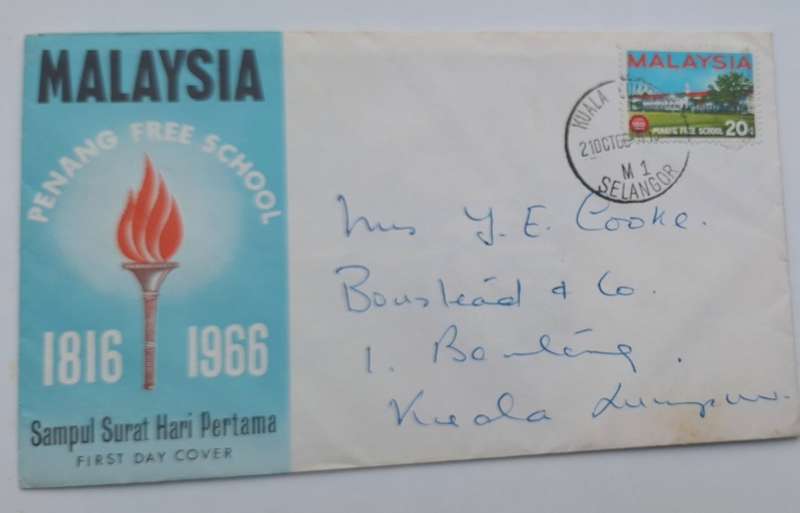 MALAYSIA
PENANG FREE SCHOOL
1816 1966
Sampul Surat Hari Pertama
FIRST DAY COVER
MALAYSIA
PENANG FREE SCHOOL 20c
KUALA
21 OCT
M 1
SELANGOR
Mrs Y. E. Cooke.
Boustead & Co.
1.
Kuala Lumpur.